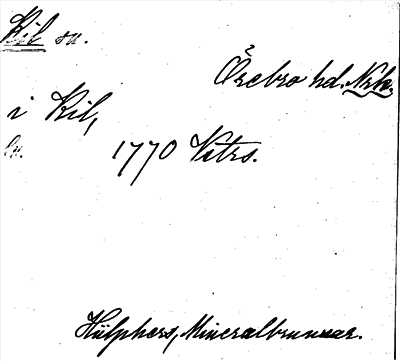 Kil sn.
Örebro hd. Nrk.
i Kil,
1770 Vitrs.
Hülphers, Mineralbrunnar.